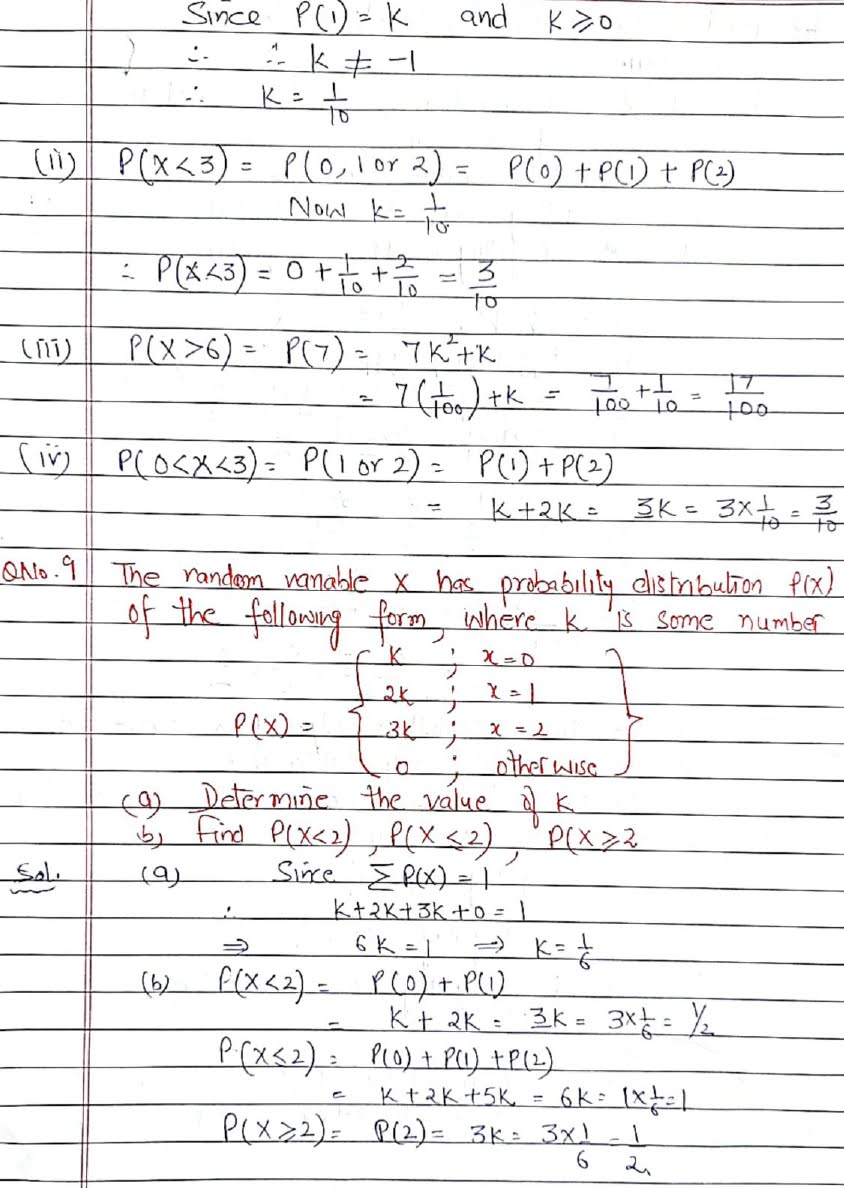 Since P(1) = K and K ≥ 0
∴ ∴ K ≠ -1
∴ K = 1/10
(ii) P(X<3) = P(0, 1 or 2) = P(0) + P(1) + P(2)
Now K = 1/10
∴ P(X<3) = 0 + 1/10 + 2/10 = 3/10
(iii) P(X>6) = P(7) = 7K²+K
= 7(1/100) + K = 7/100 + 1/10 = 17/100
(iv) P(0<X<3) = P(1 or 2) = P(1) + P(2)
= K + 2K = 3K = 3×1/10 = 3/10
QNo. 9 The random variable X has probability distribution P(X)
of the following form, where K is some number
P(X) = { K ; x=0
2K ; x=1
3K ; x=2
0 ; otherwise }
(a) Determine the value of K
b) Find P(X<2), P(X≤2), P(X≥2
Sol. (a) Since ΣP(X) = 1
∴ K+2K+3K+0 = 1
⇒ 6K = 1 ⇒ K = 1/6
(b) P(X<2) = P(0) + P(1)
= K + 2K = 3K = 3×1/6 = 1/2
P(X≤2) = P(0) + P(1) + P(2)
= K + 2K + 5K = 6K = 1×1/6=1
P(X≥2) = P(2) = 3K = 3×1/6 = 1/2